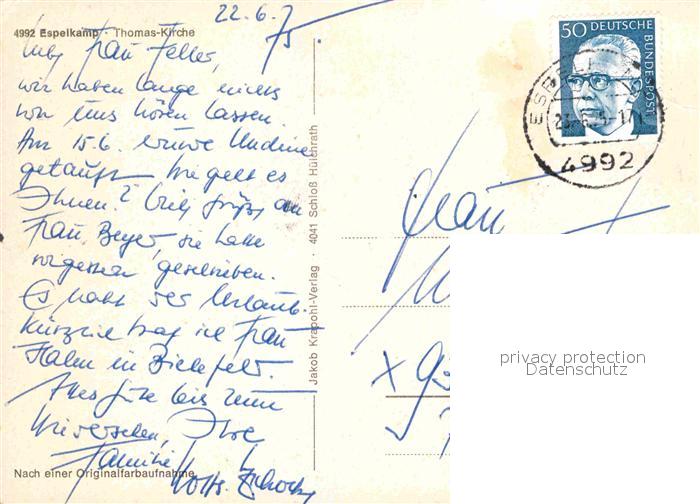 22.6.75
4992 Espelkamp · Thomas-Kirche
Liebe Frau Feller,
wir haben lange nichts
von uns hören lassen.
Am 15.6. wurde Undine
getauft. Wie geht es
Ihnen? Viele Grüße an
Frau Beyer, sie hatte
vergessen geschrieben.
Es naht der Urlaub.
Kürzlich traf ich Frau
Hahn in Bielefeld.
Alles Gute bis zum
Wiedersehen, Ihre
Familie
Nach einer Originalfarbaufnahme
Jakob Krapohl-Verlag · 4041 Schloß Hülchrath
50 DEUTSCHE BUNDESPOST
4992
Frau
privacy protection
Datenschutz